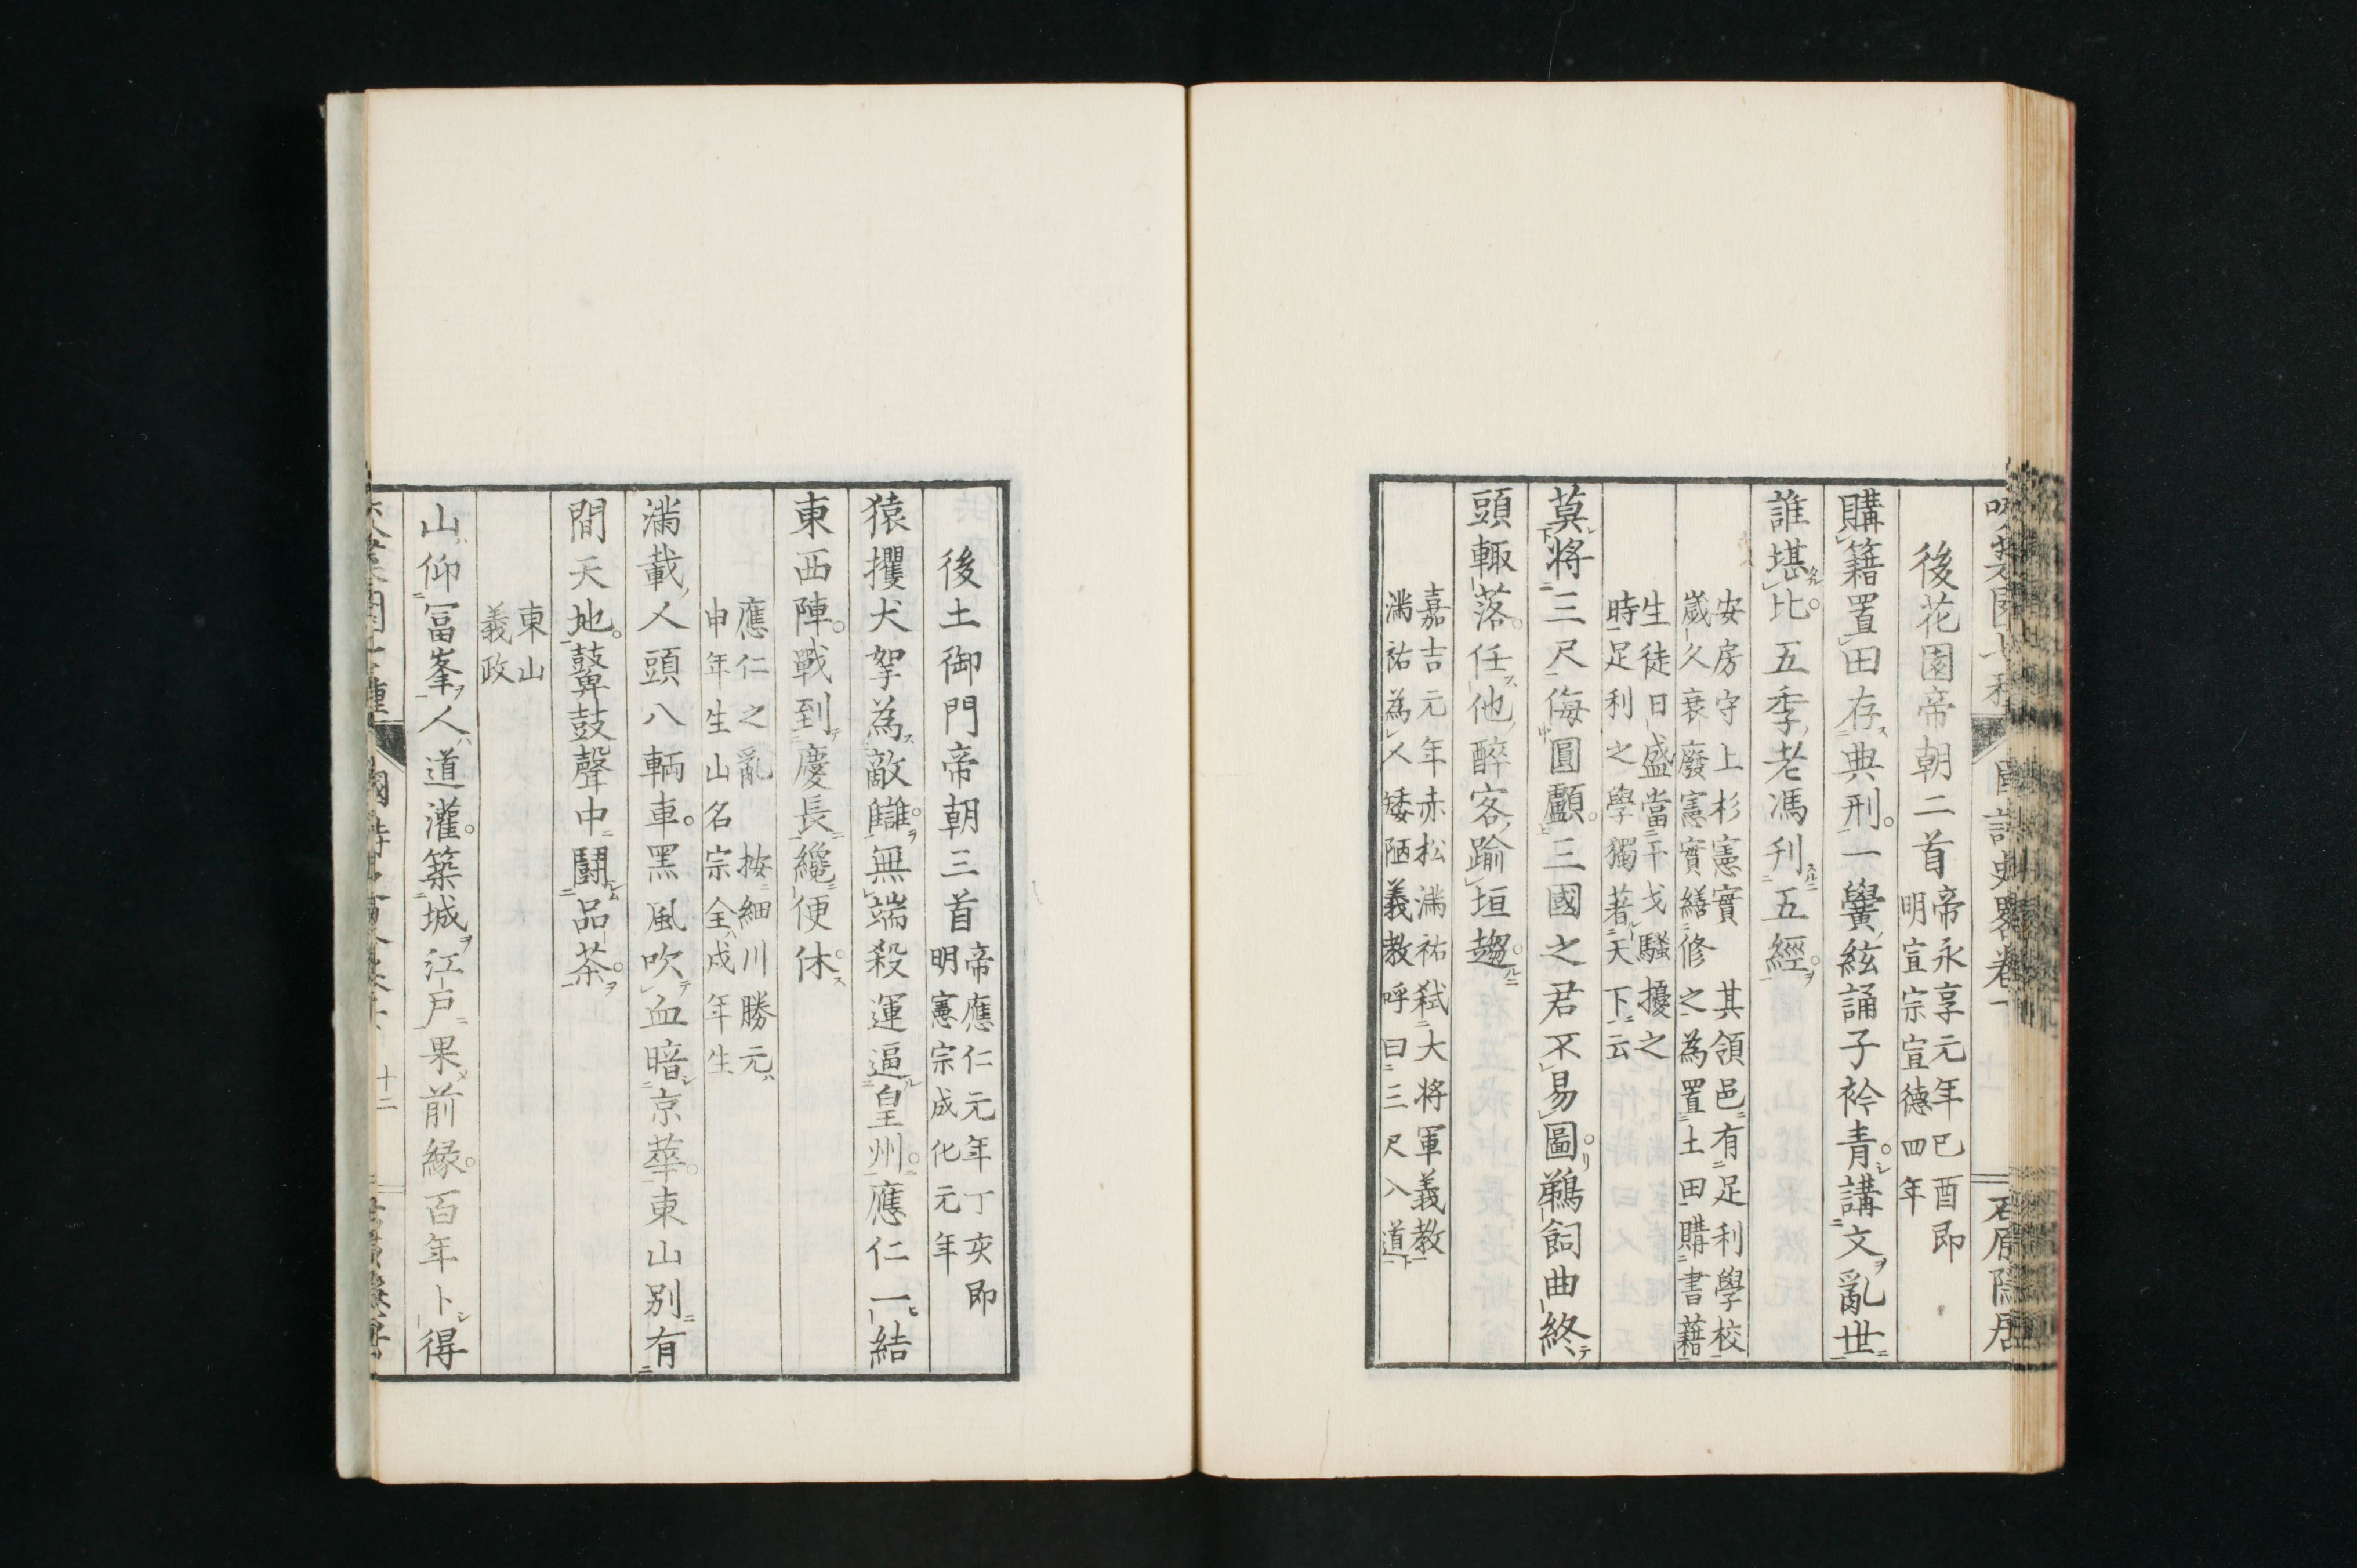 後花園帝朝二首
帝永享元年巳酉即
明宣宗宣德四年
購籍置田存典刑一黌絃誦子衿青講文亂世
誰堪比五季老馮刋五經
安房守上杉憲實其領邑有足利學校
歲久衰廢憲實繕修之為置土田購書藉
生徒日盛當干戈騷擾之
時足利之學獨著天下云
莫將三尺侮圓顱三國之君不易圖鵜飼曲終
頭輙落任他醉客踰垣趨
嘉吉元年赤松滿祐弒大将軍義教
滿祐為人矮陋義教呼曰三尺入道
後土御門帝朝三首
帝應仁元年丁亥即
明憲宗成化元年
猿攫犬拏為敵讎無端殺運逼皇州應仁一結
東西陣戰到慶長纔便休
應仁之亂按細川勝元
申年生山名宗全戌年生
滿載人頭八輌車黑風吹血暗京華東山別有
間天地鼙鼓聲中鬪品茶
東山
義政
山仰冨峯人道灌築城江戶果前緣百年卜得
十二